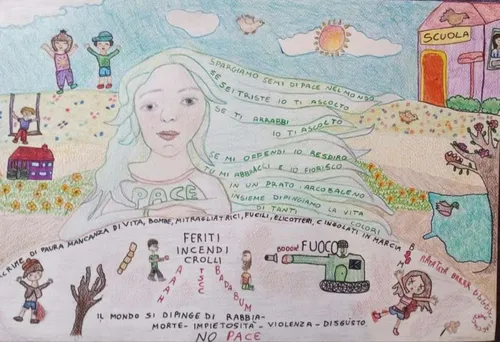 SCUOLA
SPARGIAMO SEMI DI PACE NEL MONDO
SE SEI TRISTE IO TI ASCOLTO
SE TI ARRABBI
IO TI ASCOLTO
SE MI OFFENDI IO RESPIRO
TU MI ABBRACCI E IO FIORISCO
IN UN PRATO ARCOBALENO
INSIEME DIPINGIAMO LA VITA
DI TANTI COLORI
PACE
DI PAURA MANCANZA DI VITA, BOMBE, MITRAGLIATRICI, FUCILI, ELICOTTERI, E CINGOLATI IN MARCIA
FERITI
INCENDI
CROLLI
BOOOM FUOCO
TSCC
BADABUM
IL MONDO SI DIPINGE DI RABBIA-
MORTE- IMPIETOSITÀ - VIOLENZA - DISGUSTO
NO PACE